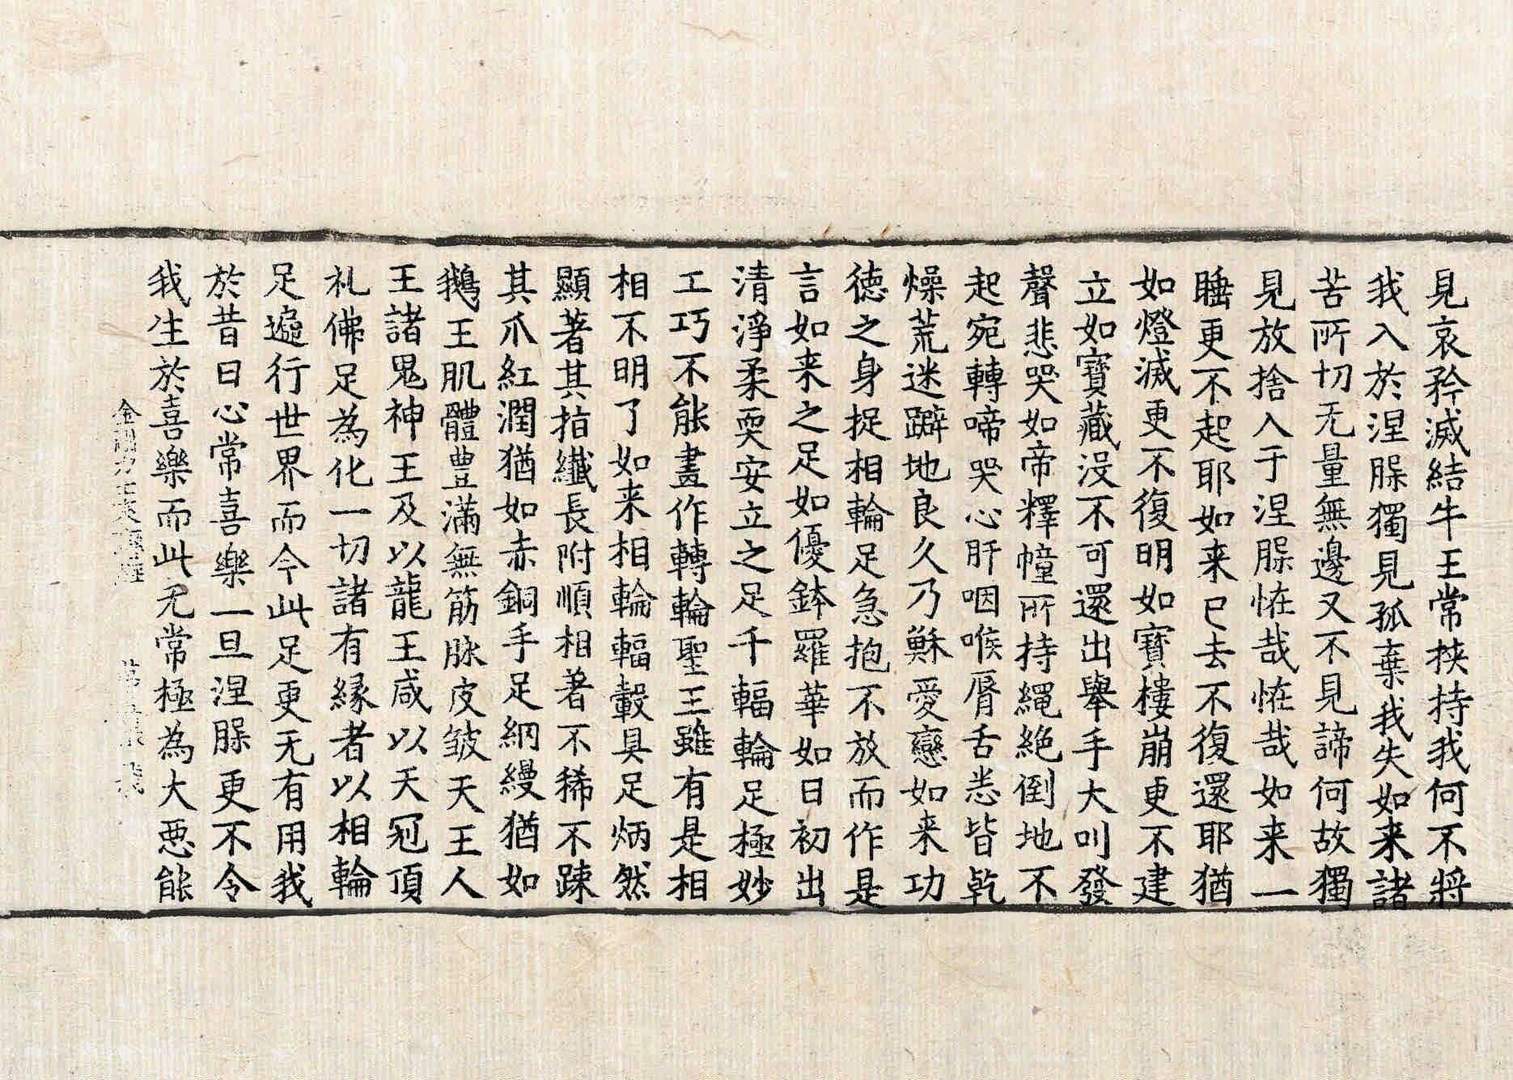 見哀矜滅結牛王常挾持我何不將
我入於涅槃獨見孤棄我失如来諸
苦所切无量無邊又不見諦何故獨
見放捨入于涅槃恠哉恠哉如来一
睡更不起耶如来已去不復還耶猶
如燈滅更不復明如寶樓崩更不建
立如寶藏没不可還出舉手大叫發
聲悲哭如帝釋幢所持繩絶倒地不
起宛轉啼哭心肝咽喉脣舌悉皆乾
燥荒迷躃地良久乃穌愛戀如来功
徳之身捉相輪足急抱不放而作是
言如来之足如優鉢羅華如日初出
清淨柔耎安立之足千輻輪足極妙
工巧不能畫作轉輪聖王雖有是相
相不明了如来相輪輻轂具足炳然
顯著其指纖長附順相著不稀不踈
其爪紅潤猶如赤銅手足網縵猶如
鵝王肌體豊滿無筋脉皮皺天王人
王諸鬼神王及以龍王咸以天冠頂
礼佛足為化一切諸有縁者以相輪
足遍行世界而今此足更无有用我
於昔日心常喜樂一旦涅槃更不令
我生於喜樂而此无常極為大惡能
金剛力士哀戀經